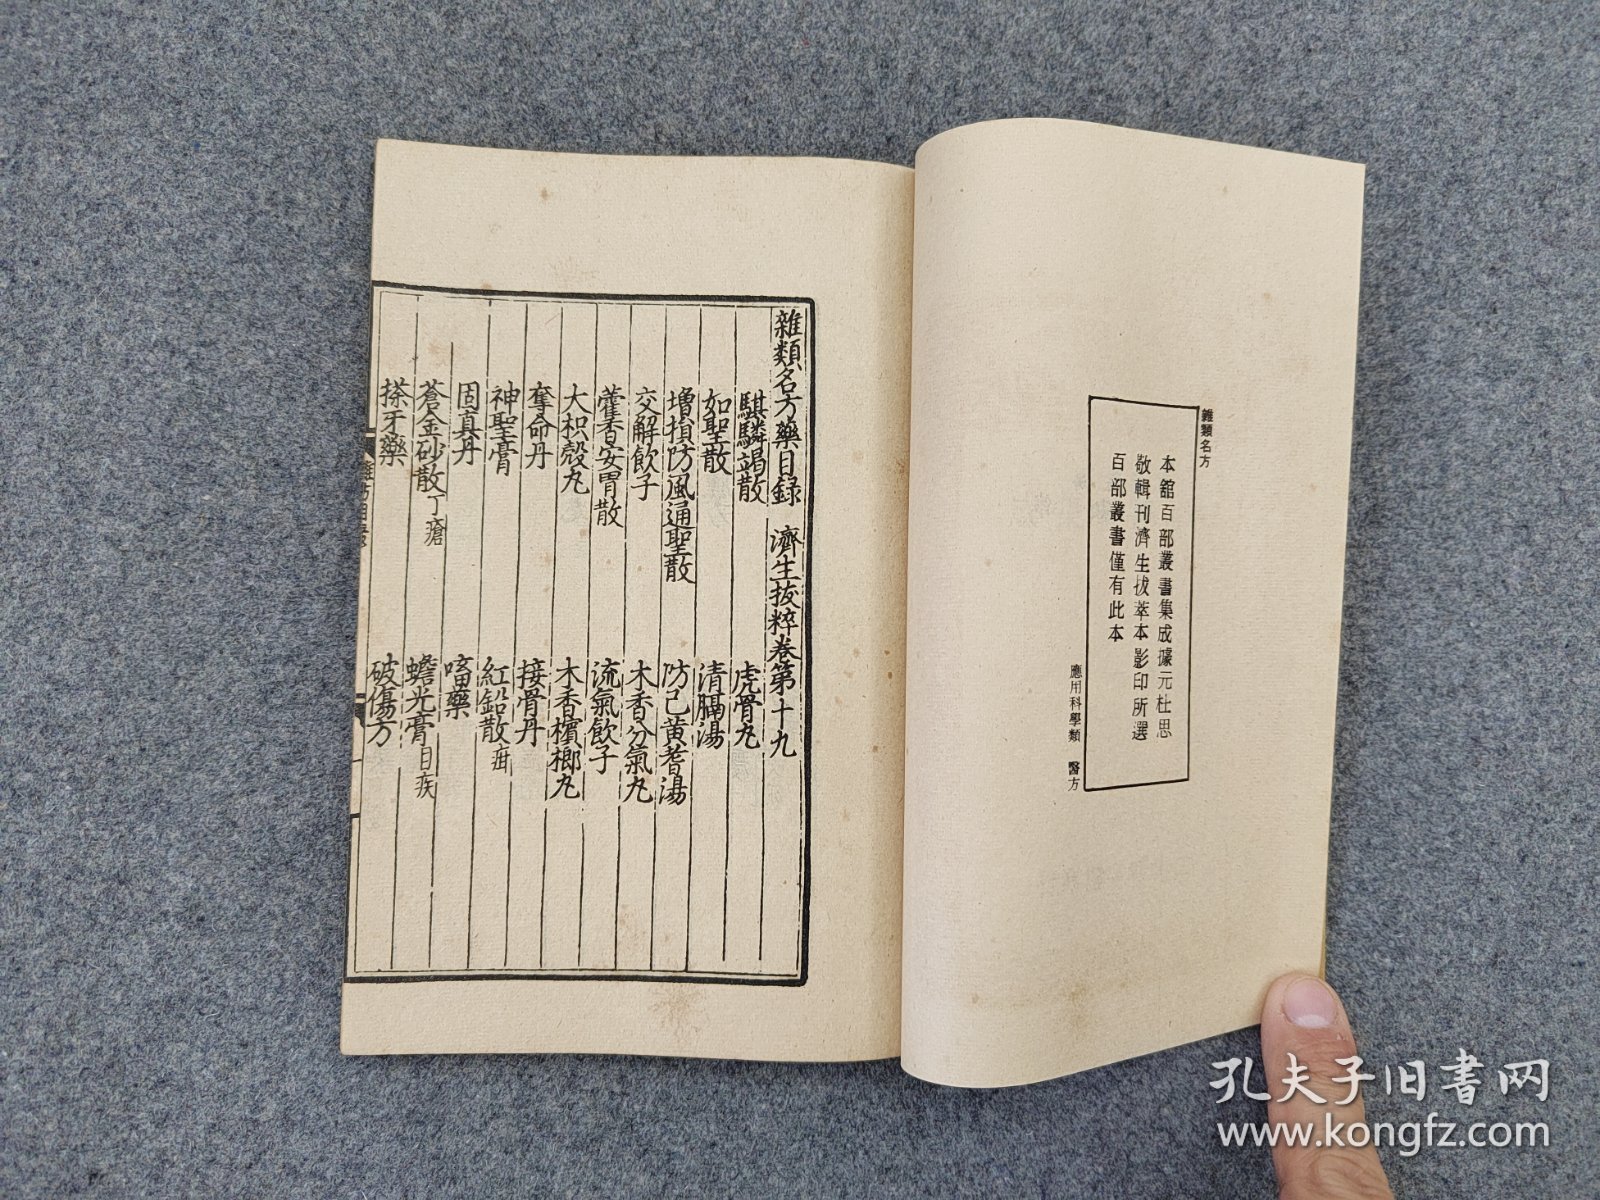 雜類名方
本館百部叢書集成據元杜思
敬輯刊濟生拔萃本影印所選
百部叢書僅有此本
應用科學類 醫方
雜類名方藥目録 濟生拔粹卷第十九
騏驎竭散 虎骨丸
如聖散 清膈湯
增損防風通聖散 防己黄耆湯
交解飲子 木香分氣丸
藿香安胃散 流氣飲子
大枳殼丸 木香檳榔丸
奪命丹 接骨丹
神聖膏 紅鉛散疳
固真丹 㗜藥
蒼金砂散丁瘡 蟾光膏目疾
搽牙藥 破傷方
孔夫子旧書网
www.kongfz.com